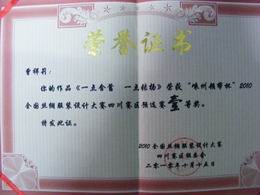 荣誉证书
曹祥莉：
你的作品《一点金鳌 一点结杨》荣获"嵊州领带杯"2010
全国丝绸服装设计大赛四川赛区预选赛壹等奖。
特发此证。
2010全国丝绸服装设计大赛
四川赛区组委会
二〇一〇年十月十五日